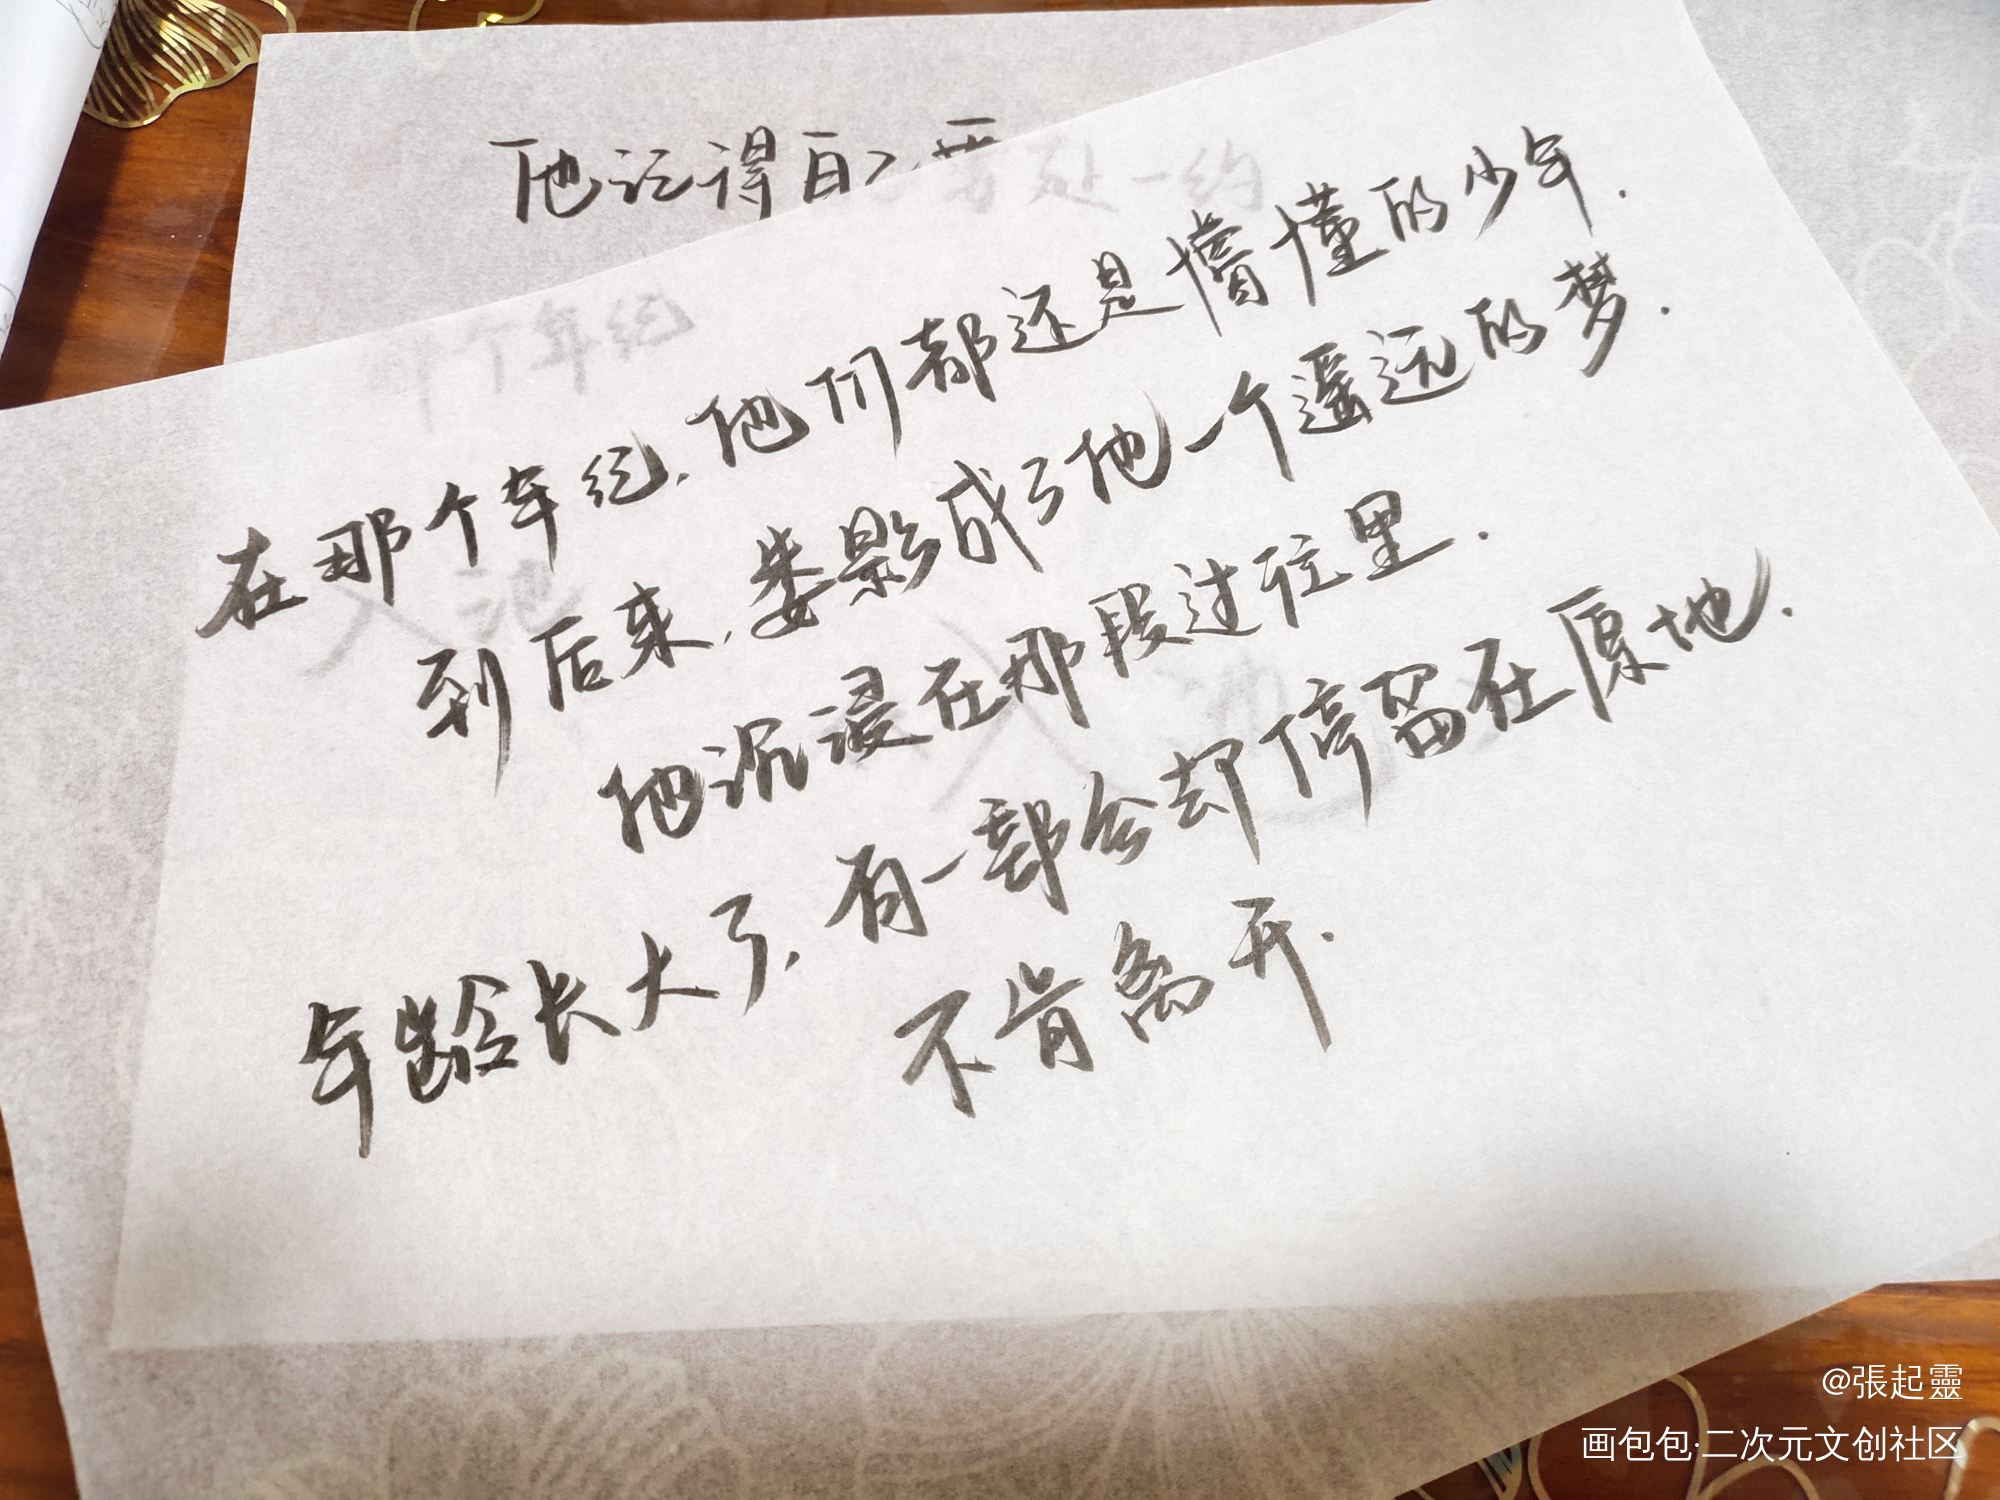 他记得自己要赴一约
个年纪
在那个年纪.他们都还是懵懂的少年.
到后来.娄影成了他一个遥远的梦.
他沉浸在那段过往里.
年龄长大了.有一部分却停留在原地.
不肯离开.
@張起靈
画包包·二次元文创社区